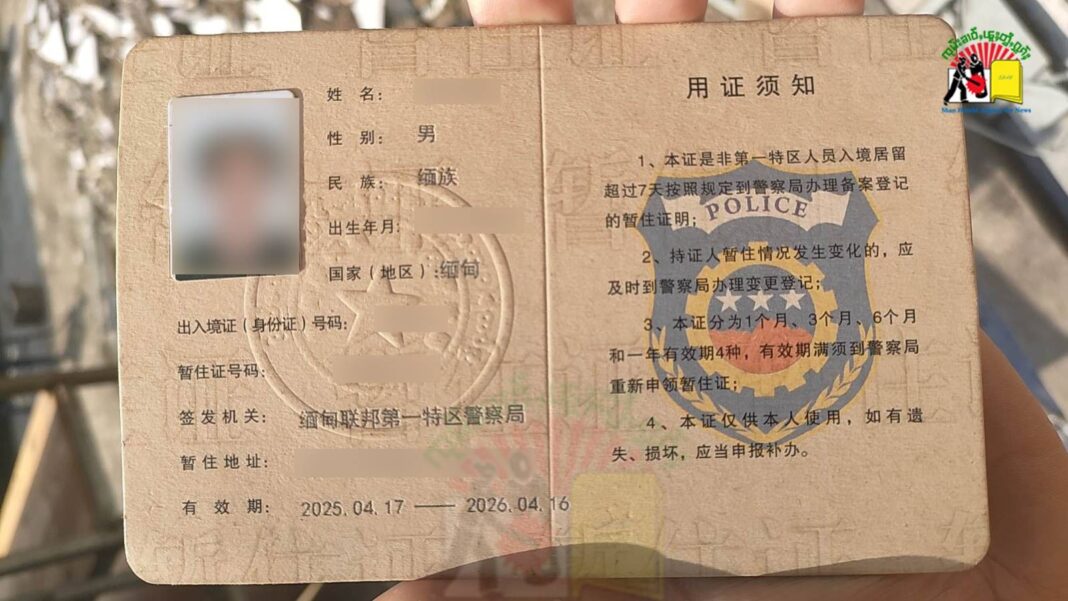 姓 名:
性 别: 男
民 族: 缅族
出生年月:
国家(地区):缅甸
出入境证(身份证)号码:
暂住证号码:
签发机关: 缅甸联邦第一特区警察局
暂住地址:
有 效 期: 2025.04.17 —— 2026.04.16
用证须知
1、本证是非第一特区人员入境居留
超过7天按照规定到警察局办理备案登记
的暂住证明;
2、持证人暂住情况发生变化的,应
及时到警察局办理变更登记;
3、本证分为1个月、3个月、6个月
和一年有效期4种,有效期满须到警察局
重新申领暂住证;
4、本证仅供本人使用,如有遗
失、损坏,应当申报补办。
POLICE